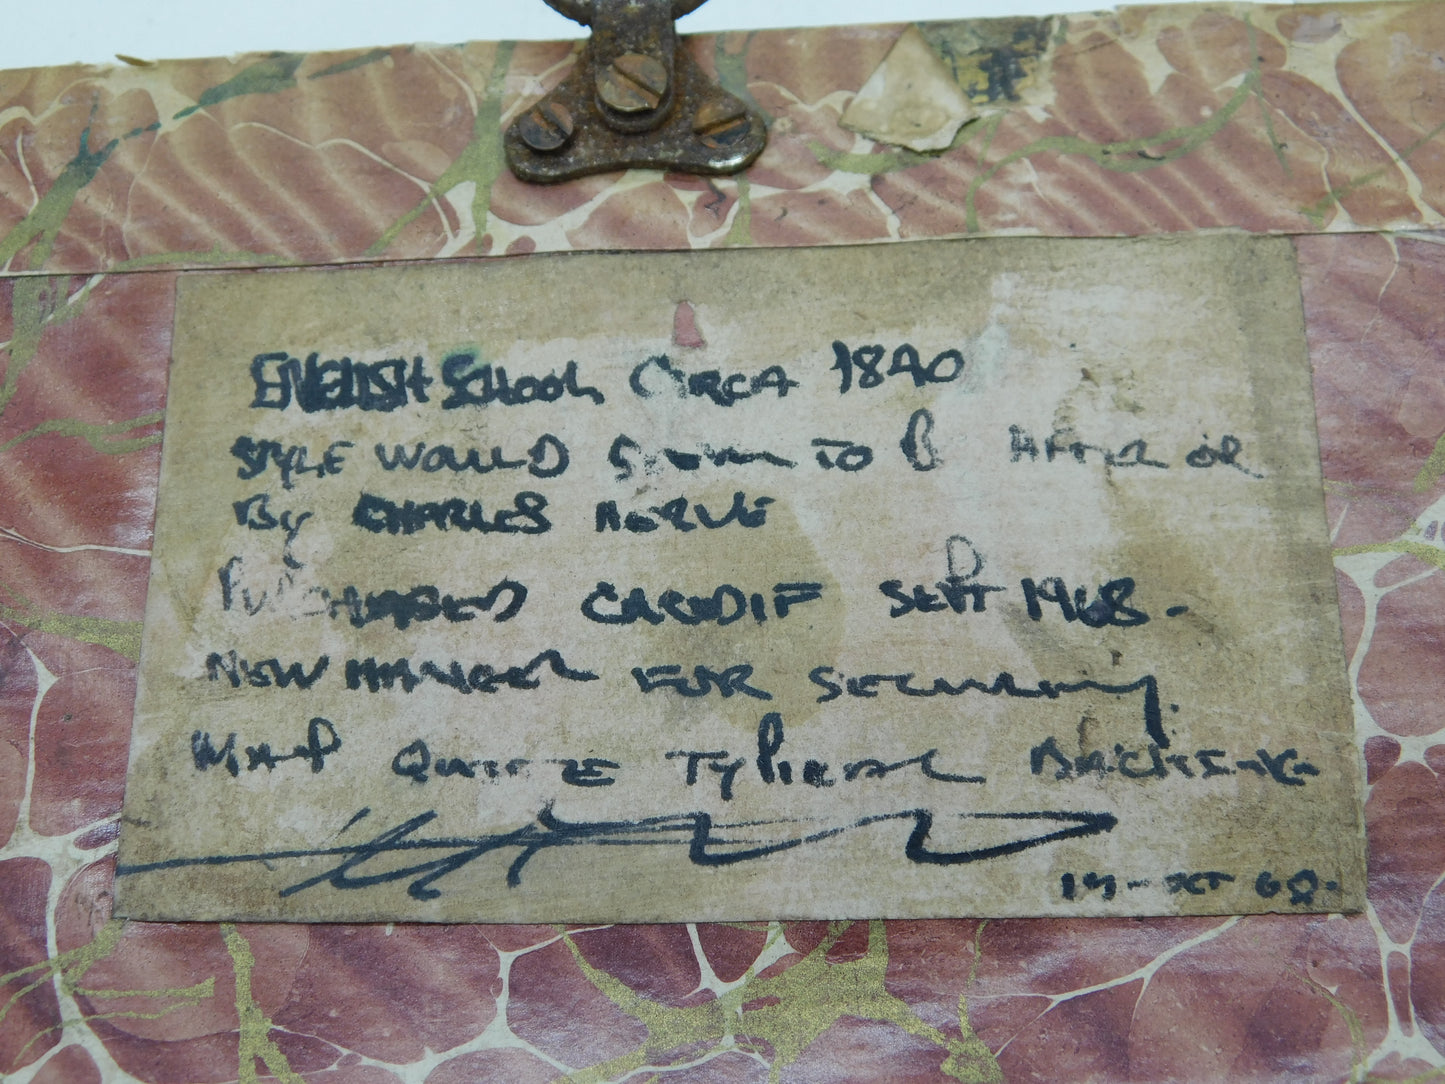 ENGLISH SCHOOL CIRCA 1840
STYLE WOULD SEEM TO B AFTER OR
By CHARLES HERVE
PURCHASED CARDIFF SEPT 1968.
NEW HANGER FOR SECURITY.
QUITE TYPICAL BACKING
OCT 68.